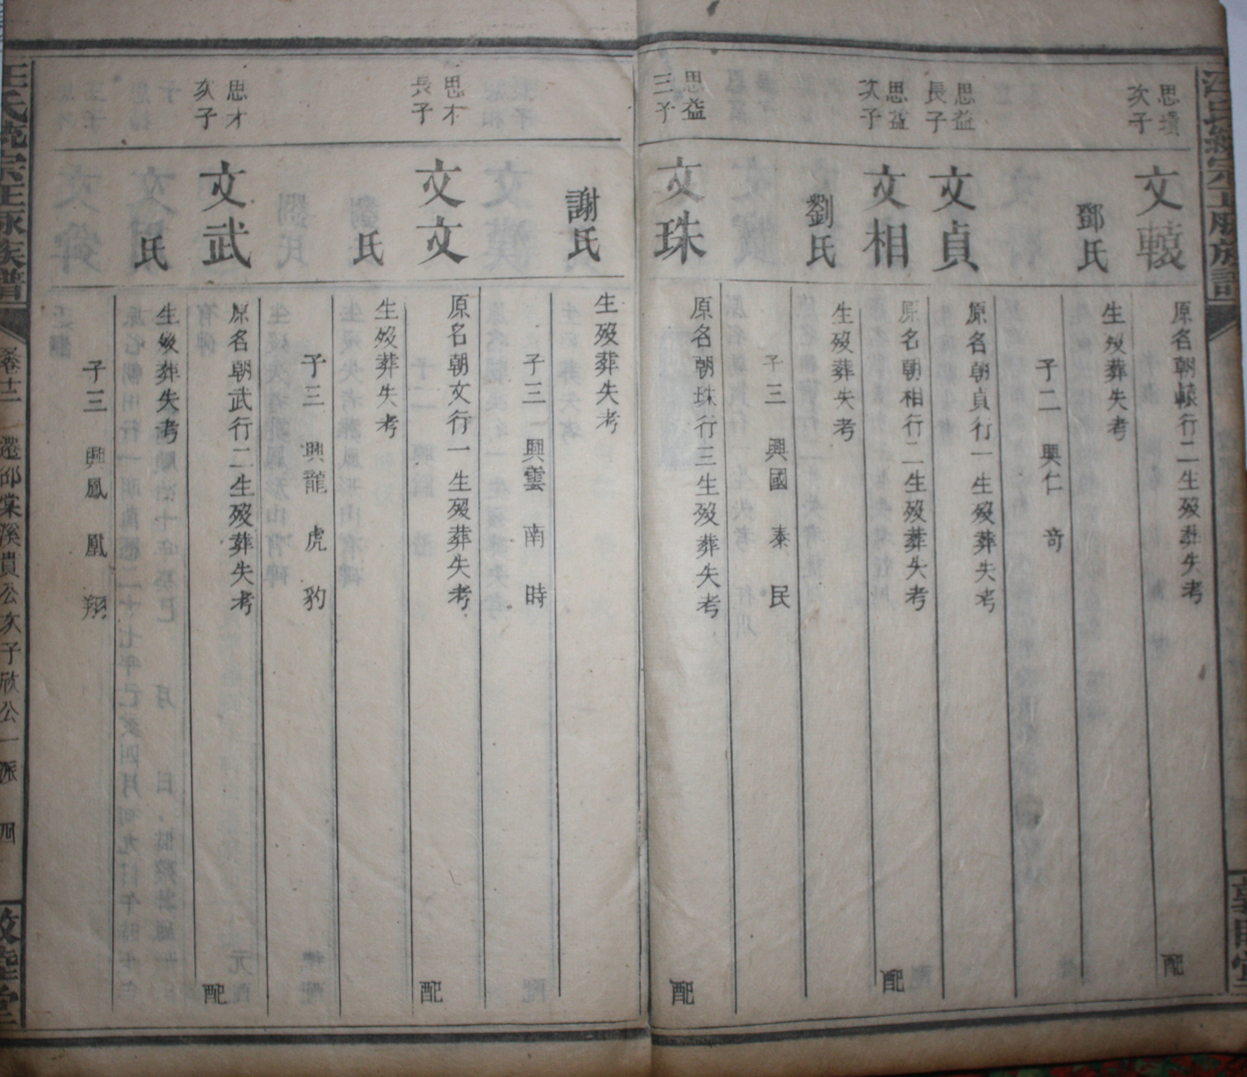 汪氏統宗正脉族譜
思瓚
次子
文轅
原名朝轅行二生歿葬失考
配
鄧氏
生歿葬失考
子二 興仁 奇
思益
長子
文貞
原名朝貞行一生歿葬失考
思益
次子
文相
原名朝相行二生歿葬失考
配
劉氏
生歿葬失考
子三 興國 泰 民
思益
三子
文珠
原名朝珠行三生歿葬失考
配
謝氏
生歿葬失考
子三 興雲 南 時
思才
長子
文文
原名朝文行一生歿葬失考
配
氏
生歿葬失考
子三 興龍 虎 豹
思才
次子
文武
原名朝武行二生歿葬失考
配
氏
生歿葬失考
子三 興鳳 凰 翔
汪氏統宗正脉族譜
卷廿二 遷邱棠溪貴公次子欣公一派 四
敦睦堂